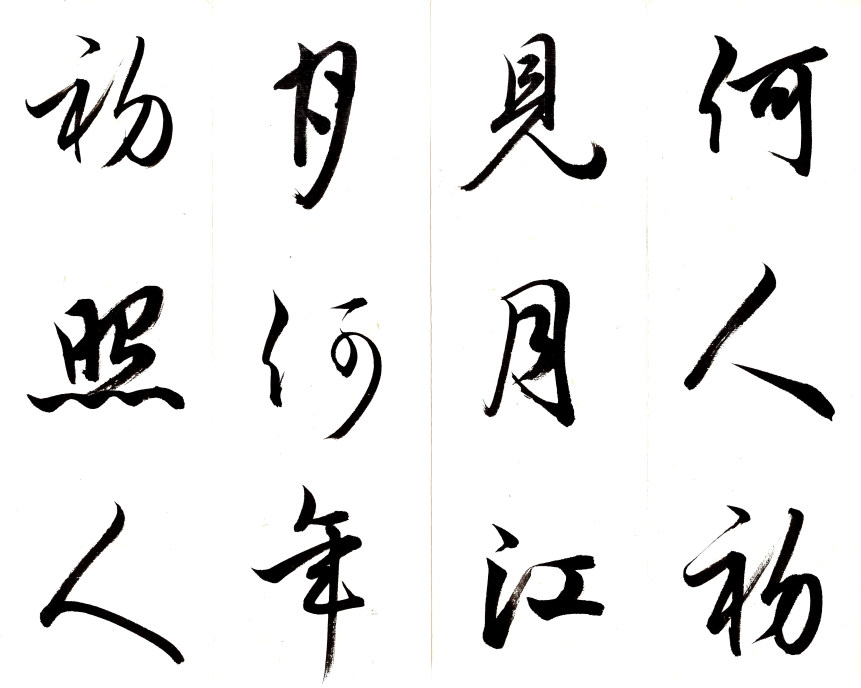 何人初
見月江
月何年
初照人